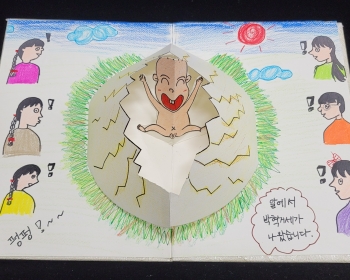 !
!
!
!
!
!
알에서
박혁거세가
나왔습니다.
펑펑!~~